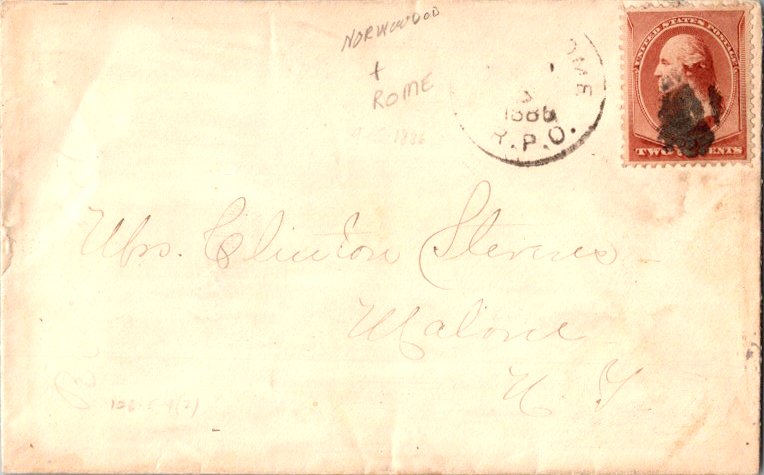 NORWOOD
+
ROME
OME
1886
R.P.O.
UNITED STATES POSTAGE
TWO CENTS
1886
Mrs. Clinton Stevens
Malone
N. Y